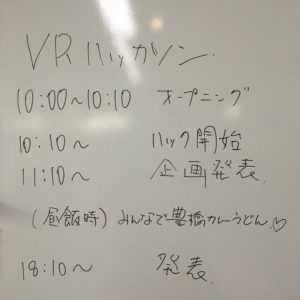 VRハッカソン.
10:00~10:10 オープニング
10:10~ ハック開始
11:10~ 企画発表.
(昼飯時) みんなで豊橋カレーうどん.♡
18:10~ 発表.